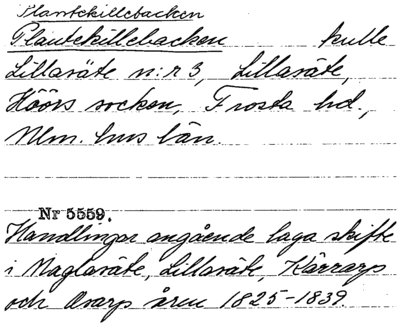 Plantekillebacken
Plantekillebacken kulle
Lillaräte n:r 3, Lillaräte,
Höörs socken, Frosta hd,
Mlm. hus län.
Nr 5559.
Handlingar angående laga skifte
i Maglaräte, Lillaräte, Kärrarp
och Orarp åren 1825-1839.